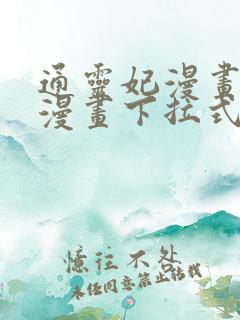 通靈妃漫畫
漫畫下拉式
憶往不处
未经同意禁止转载